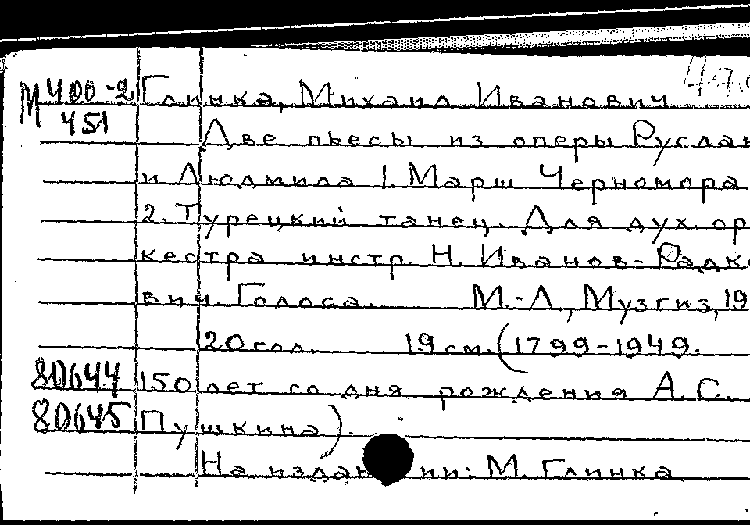 М 400-2 Глинка, Михаил Иванович
451 Две пьесы из оперы Руслан
и Людмила 1. Марш Черномора
2. Турецкий танец. Для дух. ор
кестра инстр. Н. Иванов-Радк
вич. Голоса. М.-Л., Музгиз, 19
20 гол. 19 см. (1799-1949.
80644 150 лет со дня рождения А.С.
80645 Пушкина).
На издании: М. Глинка